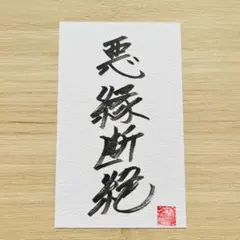 悪縁断絶